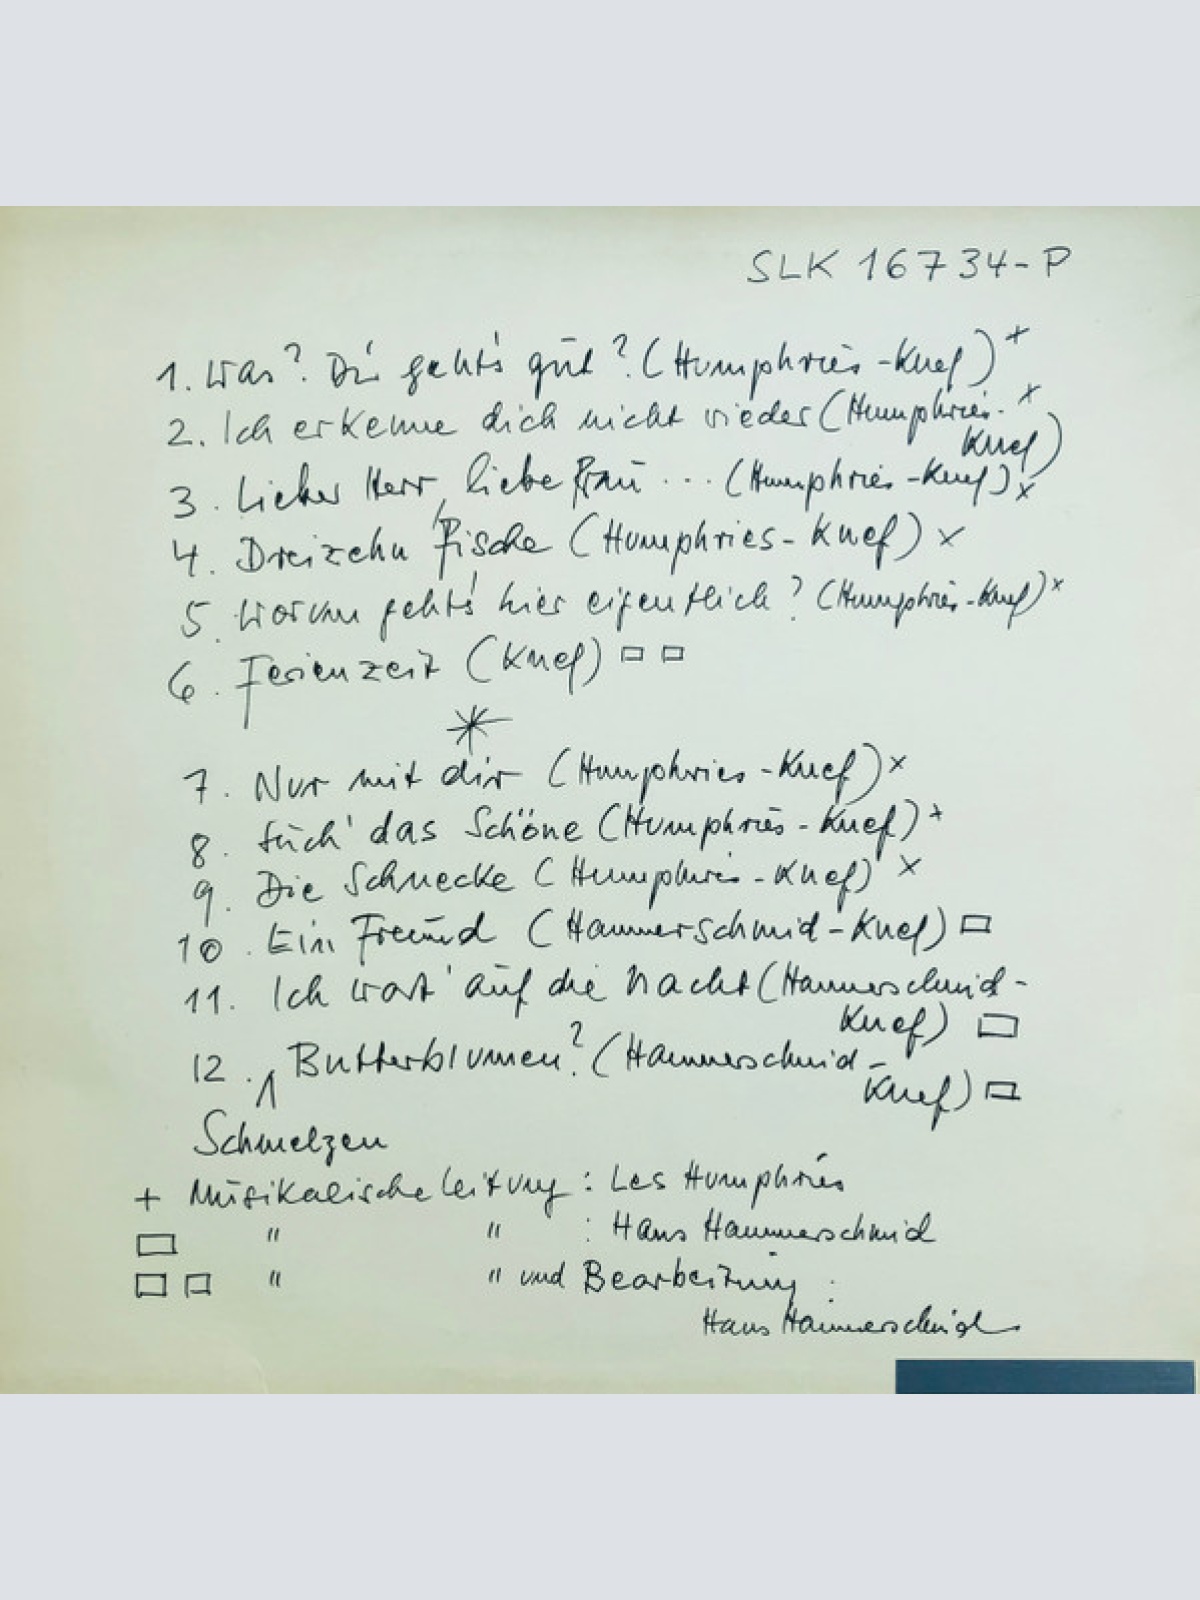 SLK 16734-P
1. Was? Dir geht's gut? (Humphries-Knef) +
2. Ich erkenne dich nicht wieder (Humphries- x
Knef)
3. Lieber Herr, liebe Frau... (Humphries-Knef) x
4. Dreizehn Fische (Humphries-Knef) x
5. Worum geht's hier eigentlich? (Humphries-Knef) x
6. Ferienzeit (Knef) □ □
*
7. Nur mit dir (Humphries-Knef) x
8. Such' das Schöne (Humphries-Knef) +
9. Die Schnecke (Humphries-Knef) x
10. Ein Freund (Hammerschmid-Knef) □
11. Ich wart' auf die Nacht (Hammerschmid-
Knef) □
12. Butterblumen? (Hammerschmid-
Knef) □
Schmelzen
+ Musikalische Leitung: Les Humphries
□ " " : Hans Hammerschmid
□ □ " " und Bearbeitung:
Hans Hammerschmid